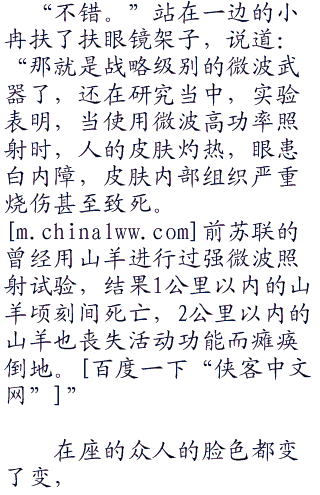 “不错。”站在一边的小
冉扶了扶眼镜架子，说道：
“那就是战略级别的微波武
器了，还在研究当中，实验
表明，当使用微波高功率照
射时，人的皮肤灼热，眼患
白内障，皮肤内部组织严重
烧伤甚至致死。
[m.china1ww.com]前苏联的
曾经用山羊进行过强微波照
射试验，结果1公里以内的山
羊顷刻间死亡，2公里以内的
山羊也丧失活动功能而瘫痪
倒地。[百度一下“侠客中文
网”]”
在座的众人的脸色都变
了变，